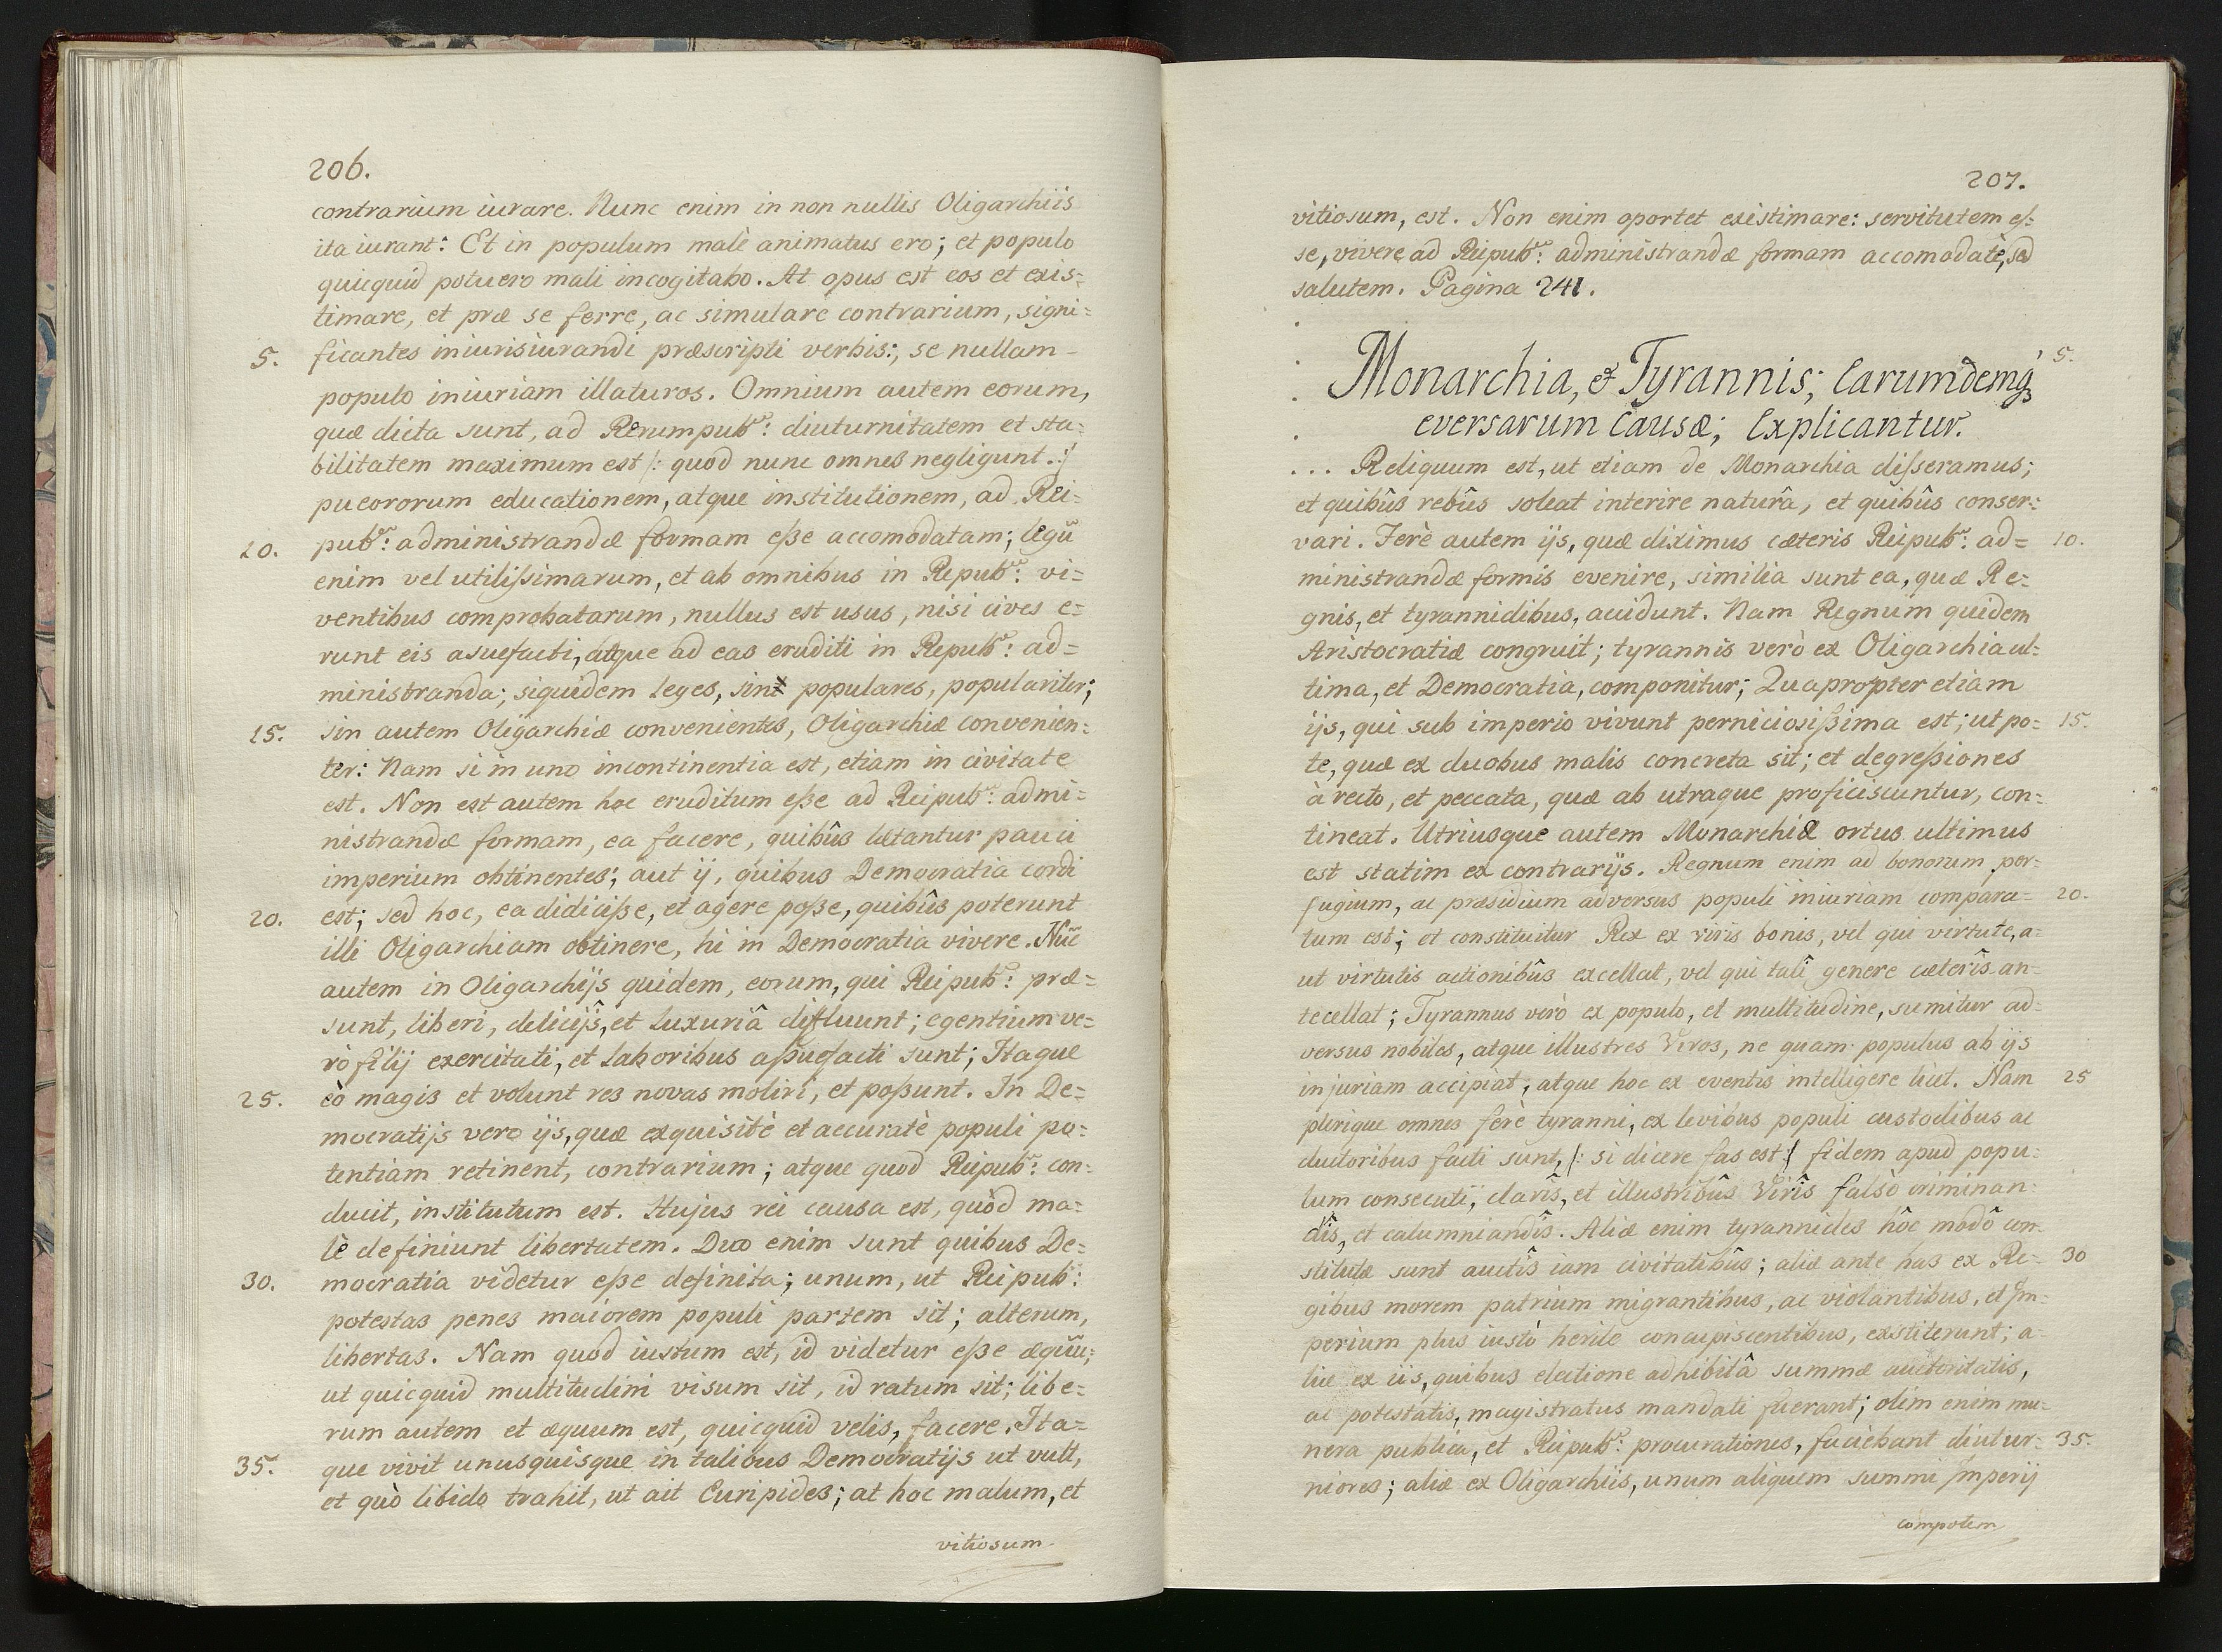 206.
contrarium iurare. Nunc enim in non nullis Oligarchiis
ita iurant: Et in populum malè animatus ero; et populo
quicquid potuero mali incogitabo. At opus est eos et exis=
timare, et præ se ferre, ac simulare contrarium, signi=
5. ficantes iniurisiurandi præscripti verbis:, se nullam
populo iniuriam illaturos. Omnium autem eorum,
quæ dicta sunt, ad Rerumpub: diuturnitatem et sta=
bilitatem maximum est /: quod nunc omnes negligunt.:/
pueororum educationem, atque institutionem, ad Rei=
10. pub: administrandæ formam eße accomodatam; legũ
enim vel utilissimarum, et ab omnibus in Repub: vi=
ventibus comprobatarum, nullus est usus, nisi cives e=
runt eis asuefacti, atque ad eas eruditi in Repub: ad=
ministranda; siquidem leges, sint populares, populariter;
15. sin autem Oligarchiæ convenientes, Oligarchiæ convenien=
ter: Nam si in uno incontinentia est, etiam in civitate
est. Non est autem hoc eruditum eße ad Reipub: admi=
nistrandæ formam, ea facere, quibûs lætantur pauci
imperium obtinentes; aut ij, quibus Democratia cordi
20. est; sed hoc, ea didiciße, et agere poße, quibûs poterunt
illi Oligarchiam obtinere, hi in Democratia vivere. Nũc
autem in Oligarchijs quidem, eorum, qui Reipub: præ=
sunt, liberi, delicijs, et luxuriâ diffluunt; egentium ve=
rò filij exercitati, et laboribus aßuefacti sunt; Itaque
25. eò magis et volunt res novas moliri, et poßunt. In De=
mocratijs vero ijs, quæ exquisitè et accuratè populi po=
tentiam retinent, contrarium; atque quod Reipub: con=
ducit, institutum est. Hujus rei causa est, quòd ma=
lè definiunt libertatem. Duo enim sunt quibus De=
30. mocratia videtur eße definita; unum, ut Reipub:
potestas penes maiorem populi partem sit; alterum,
libertas. Nam quod iustum est, id videtur eße æquũ;
ut quicquid multitudini visum sit, id ratum sit; libe=
rum autem et æquum est, quicquid velis, facere. Ita=
35. que vivit unusquisque in talibus Democratijs ut vult,
et quò libido trahit, ut ait Euripides; at hoc malum, et
vitiosum
207.
vitiosum, est. Non enim oportet existimare: servitutem es=
se, vivere ad Reipub: administrandæ formam accomodatè, sed
salutem. Pagina 241.
Monarchia, & Tyrannis; Earumdemq; 5.
eversarum Causæ; Explicantur.
... Reliquum est, ut etiam de Monarchia disseramus;
et quibûs rebûs soleat interire naturâ, et quibûs conser=
vari. Ferè autem ijs, quæ diximus cæteris Reipub: ad= 10.
ministrandæ formis evenire, similia sunt ea, quæ Re=
gnis, et tyrannidibus, accidunt. Nam Regnum quidem
Aristocratiæ congruit; tyrannis verò ex Oligarchia ul=
tima, et Democratia, componitur; Quapropter etiam
ijs, qui sub imperio vivunt perniciosißima est; ut po= 15.
te, quæ ex duobus malis concreta sit; et degreßiones
à recto, et peccata, quæ ab utraque proficiscuntur, con=
tineat. Utriusque autem Monarchiæ ortus ultimus
est statim ex contrarijs. Regnum enim ad bonorum per=
fugium, ac præsidium adversus populi iniuriam compara= 20.
tum est; et constituitur Rex ex viris bonis, vel qui virtute, a=
ut virtutis actionibûs excellat, vel qui talî genere cæterîs an=
tecellat; Tyrannus verò ex populo, et multitudine, sumitur ad=
versus nobiles, atque illustres Viros, ne quam populus ab ijs
injuriam accipiat; atque hoc ex eventis intelligere licet. Nam 25
plerique omnes ferè tyranni, ex levibus populi custodibus ac
ductoribus facti sunt, /: si dicere fas est :/ fidem apud popu=
lum consecuti, clarîs, et illustribûs Virîs falsò criminan=
dîs, et calumniandîs. Aliæ enim tyrannides hôc modô con=
stitutæ sunt auctîs iam civitatibûs; aliæ ante has ex Re= 30
gibus morem patrium migrantibus, ac violantibus, et Im=
perium plus iustò herile concupiscentibus, exstiterunt; a=
liæ ex iis, quibus electione adhibitâ summæ auctoritatis,
ac potestatis, magistratus mandati fuerant; olim enim mu=
nera publica, et Reipub: procurationes, faciebant diutur= 35.
niores; aliæ ex Oligarchiis, unum aliquem summi Imperij
compotem